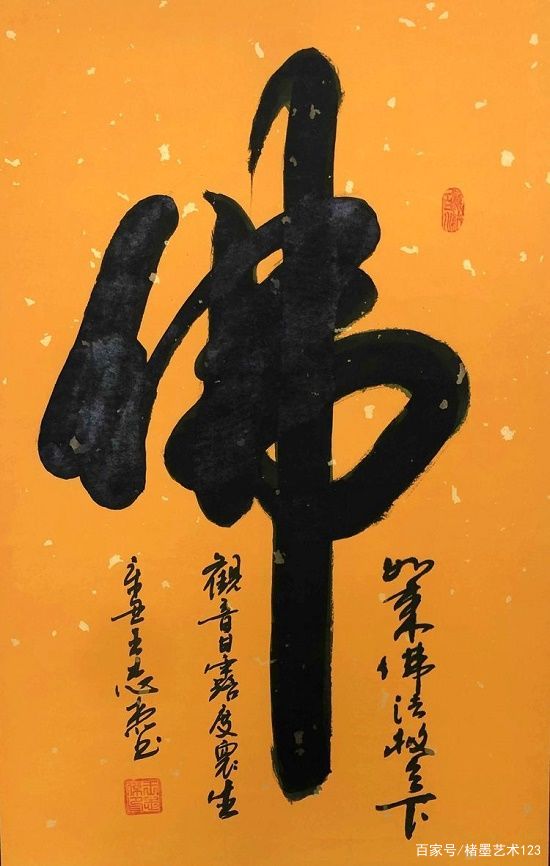 佛
如来佛法救天下
觀音甘露度眾生
辛丑王志书
百家号/楮墨艺术123